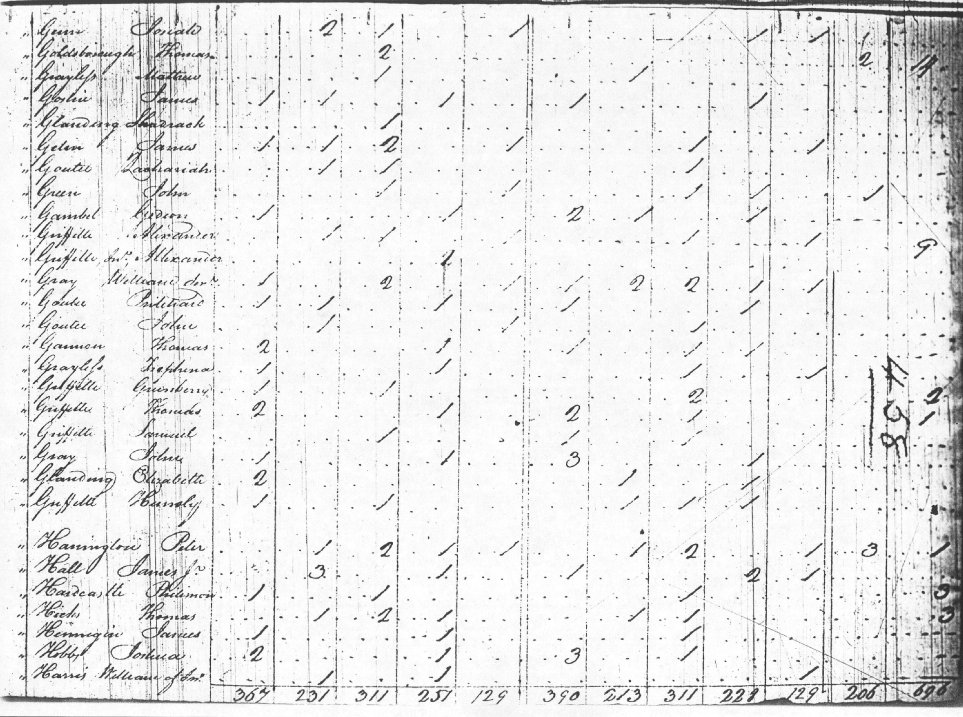 " Genn Josiah 2 1 1 1 1 1
" Goldsborough Thomas 2 2 14
" Grayless Matthew 1 1
" Goslin James 1 1 1 1 1
" Glanding Shadrach 1
" James 1 1 2 1 1 1
" Goutee Zachariah 1 1 1
" Green John 1 1 1 1 1
" Gambel Gideon 1 1 2 1 1
" Griffitte Alexander 1 1 1 1 1 9
" Griffitte Junr. Alexander 1
" Gray William Senr. 1 2 1 1 2 2 1 1
" Goutee Pritchard 1 1 1 1 1
" Goutee John 1 1 1
" Gannon Thomas 2 1 1 1 1
" Grayless 1 1 1 1
" Griffitte Greenberry 1 1 1 2 2
" Griffitte Thomas 2 1 2 1 1
" Griffitte Samuel 1 1 1
" Gray John 1 1 3 1
" Glanding Elizabeth 2 1 1
" Griffitte 1 1 1 1 1 1
458
" Harrington Peter 1 2 1 1 1 2 1 3 1
" Hall James Jr. 3 1 1 2 1
" Hardcastle Philemon 1 1 1 3
" Hicks Thomas 1 2 1 1 1 3
" Hennigin James 1 1 1
" Hobbs Joshua 2 1 3 1
" Harris William of Jas. 1 1 1
367 231 311 251 129 390 213 311 228 129 206 696